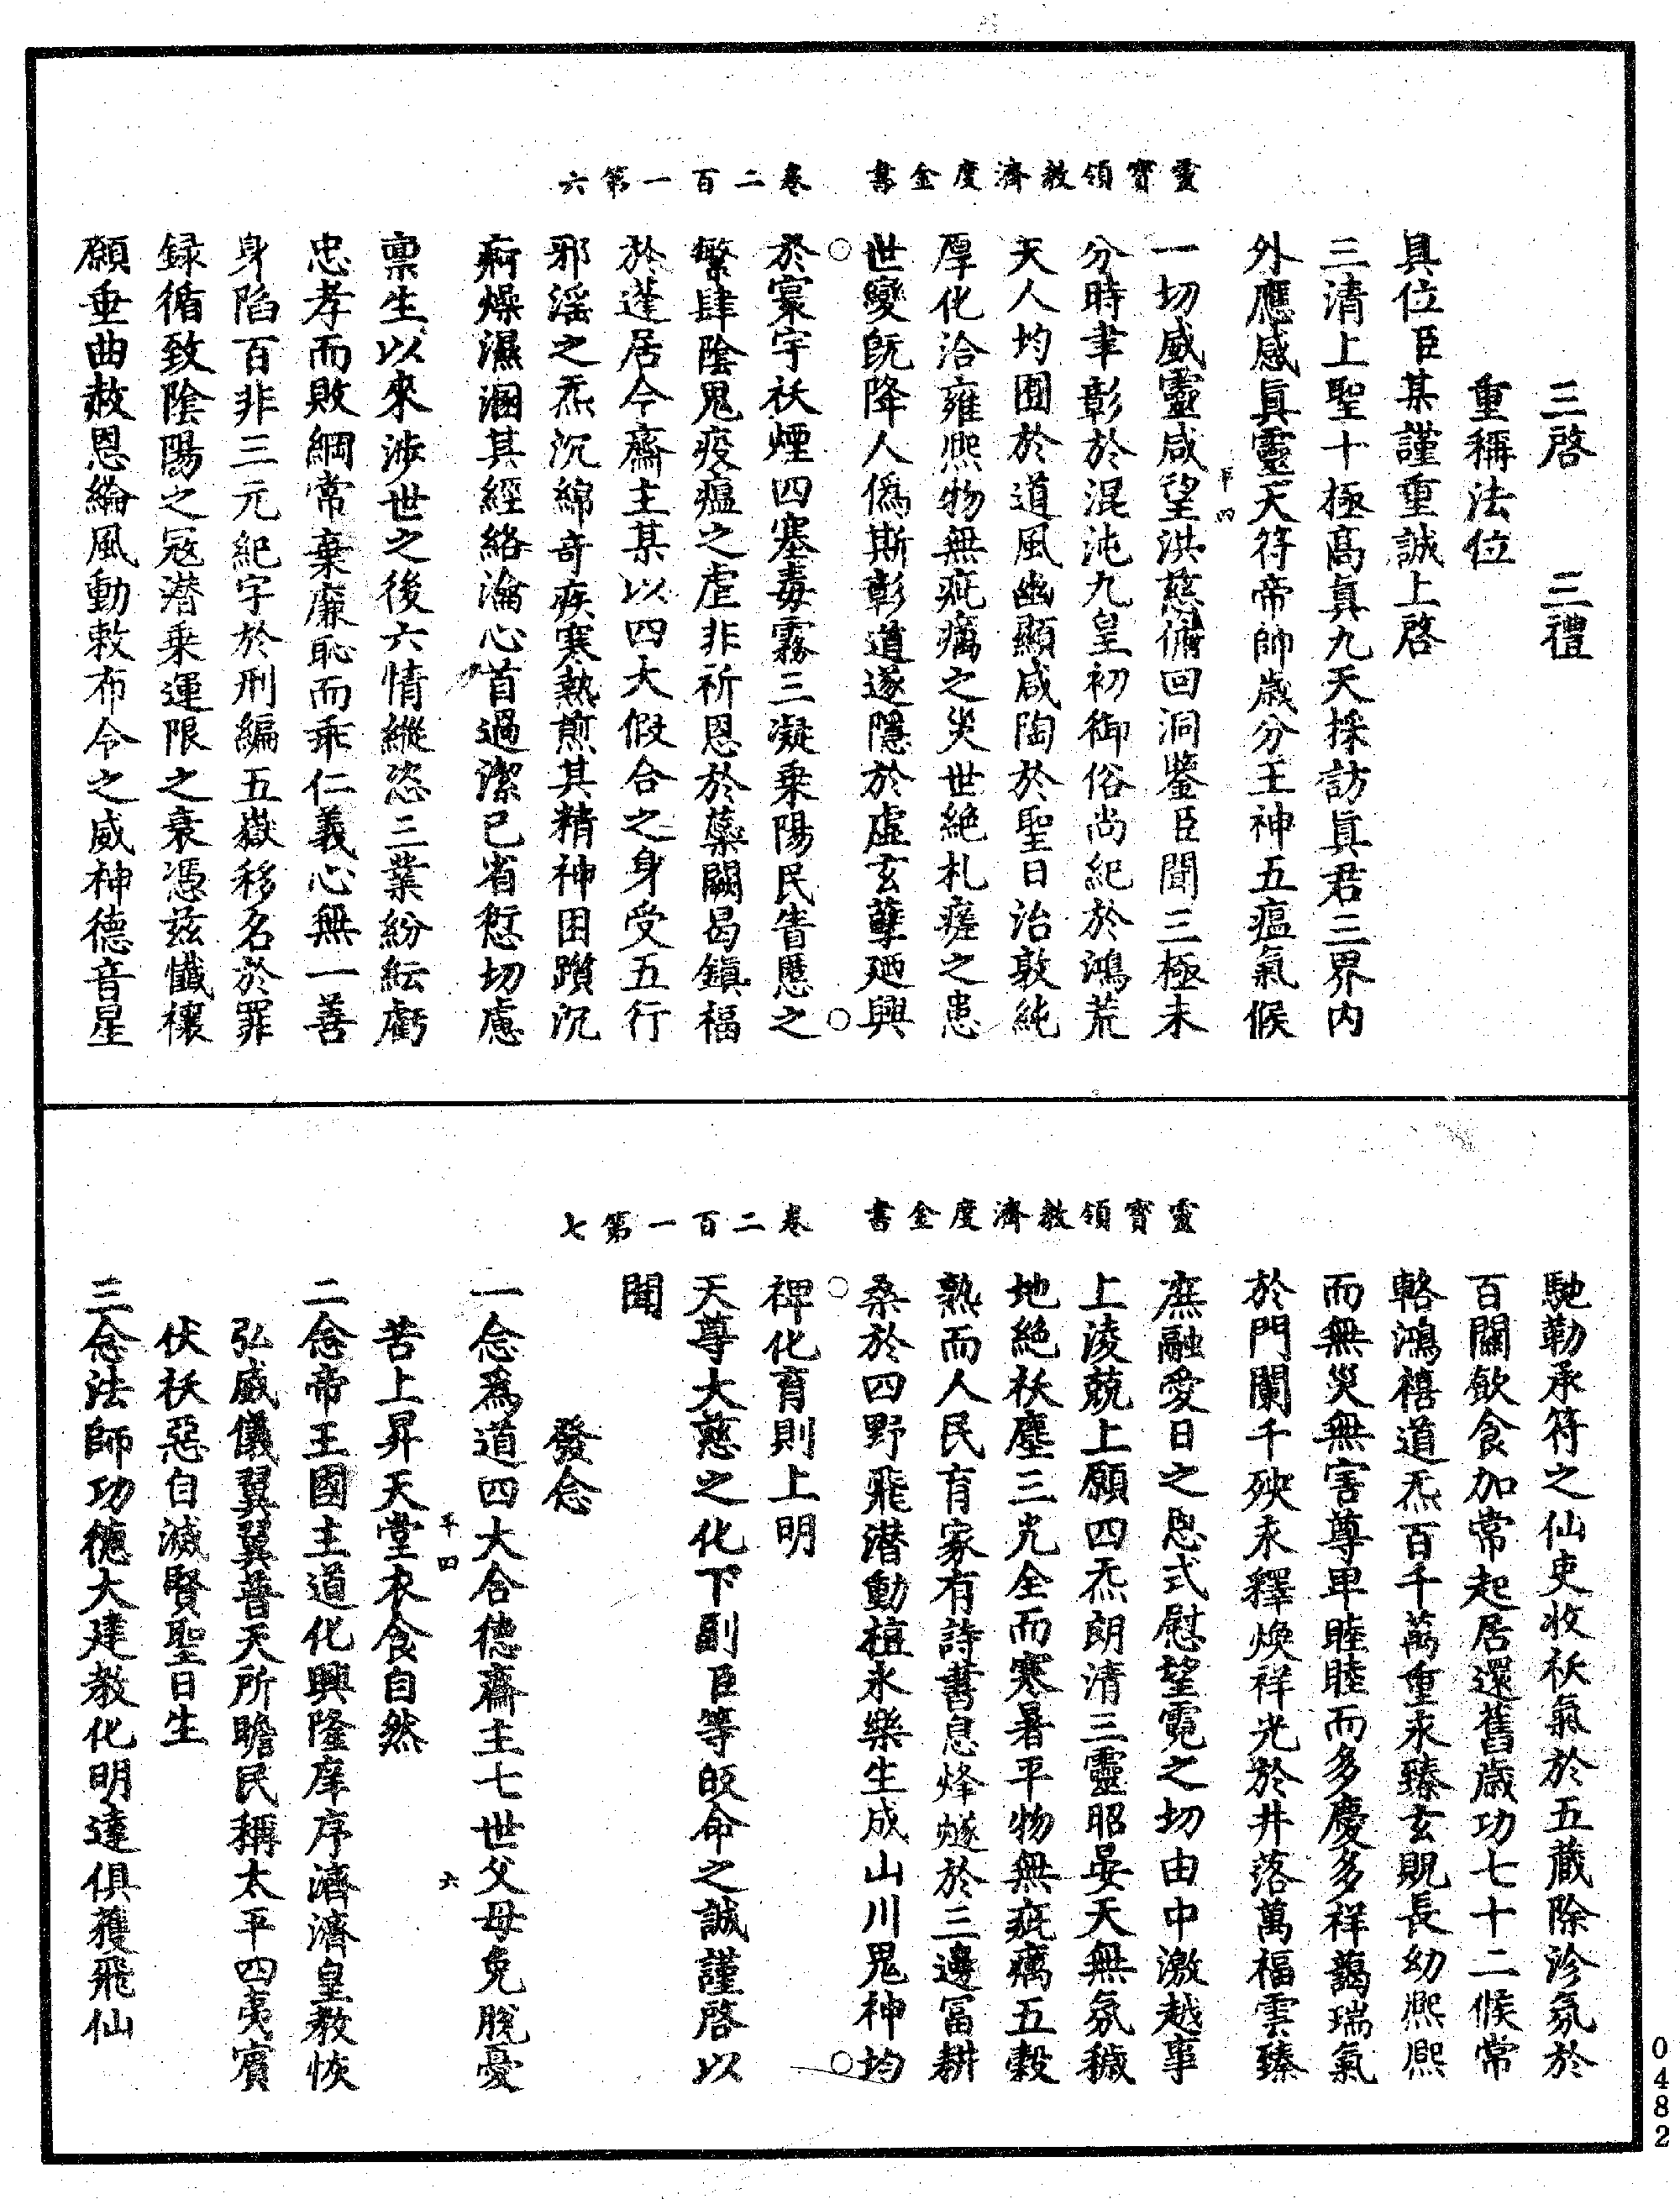 靈寶領教濟度金書 卷二百一第六
三啓 三禮
重稱法位
具位臣某謹重誠上啓
三清上聖十極高眞九天採訪眞君三界内
外應感眞靈天符帝師歲分王神五瘟氣候
一切威靈咸望洪慈俯回洞鑒臣聞三極未
分時聿彰於混沌九皇初御俗尚紀於鴻荒
天人均囿於道風幽顯咸陶於聖日治敦純
厚化洽雍熙物無疵癘之災世絶札瘥之患
世變旣降人僞斯彰道遂隱於虛玄孽廼興
於寰宇祅煙四塞毒霧三凝乗陽民眚慝之
繁肆陰鬼疫瘟之虐非祈恩於蘂闕曷鎮福
於蓬居今齋主某以四大假合之身受五行
邪淫之炁沉綿奇疾寒熱煎其精神困躓沉
痾燥濕溷其經絡瀹心首過潔己省愆切慮
禀生以來涉世之後六情縱恣三業紛紜虧
忠孝而敗綱常棄廉恥而乖仁義心無一善
身陷百非三元紀字於刑編五嶽移名於罪
録循致陰陽之寇潛乗運限之衰憑兹懺禳
願垂曲赦恩綸風動敕布令之威神德音星
靈寶領教濟度金書 卷二百一第七
馳勒承符之仙吏收祅氣於五藏除沴氛於
百關飲食加常起居還舊歲功七十二候常
輅鴻禧道炁百千萬重永臻玄貺長幼熙熙
而無災無害尊卑睦睦而多慶多祥藹瑞氣
於門闌千殃永釋煥祥光於井落萬福雲臻
庶融愛日之恩式慰望霓之切由中激越事
上淩兢上願四炁朗清三靈昭晏天無氛穢
地絶祅塵三光全而寒暑平物無疵癘五穀
熟而人民育家有詩書息烽燧於三邊冨耕
桑於四野飛潛動植永樂生成山川鬼神均
禆化育則上明
天尊大慈之化下副臣等皈命之誠謹啓以
聞
發念
一念爲道四大合德齋主七世父母免脫憂
苦上昇天堂衣食自然
二念帝王國主道化興隆庠序濟濟皇教恢
弘威儀翼翼普天所瞻民稱太平四夷賓
伏祅惡自滅賢聖日生
三念法師功德大建教化明達俱獲飛仙
0482